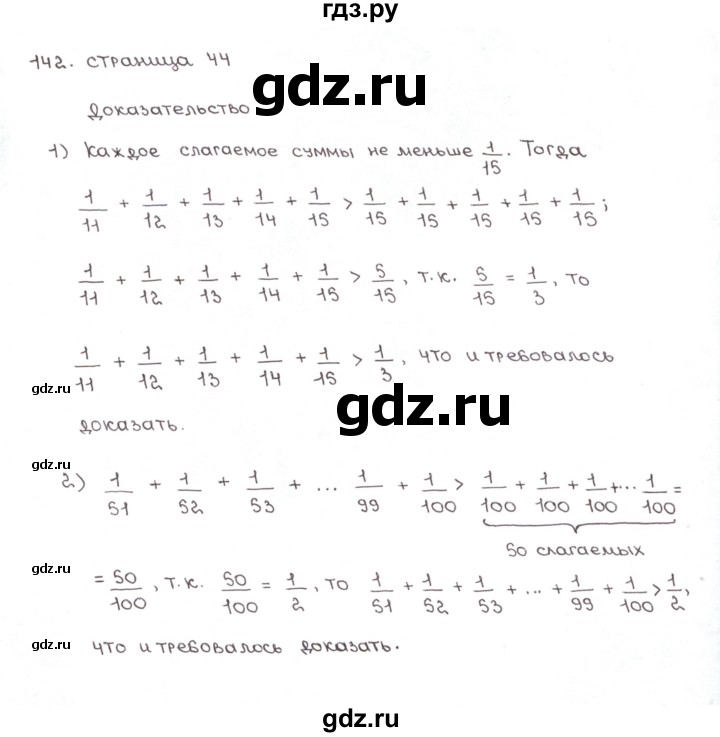 гдз.ру
142. страница 44
gdz.ru
Доказательство
1) Каждое слагаемое суммы не меньше 1/15. Тогда
1/11 + 1/12 + 1/13 + 1/14 + 1/15 > 1/15 + 1/15 + 1/15 + 1/15 + 1/15;
1/11 + 1/12 + 1/13 + 1/14 + 1/15 > 5/15, т.к. 5/15 = 1/3, то
1/11 + 1/12 + 1/13 + 1/14 + 1/15 > 1/3, что и требовалось
gdz.ru
gdz.ru
доказать.
gdz.ru
2) 1/51 + 1/52 + 1/53 + ... 1/99 + 1/100 > 1/100 + 1/100 + 1/100 + ... 1/100 =
50 слагаемых
gdz.ru
= 50/100, т.к. 50/100 = 1/2, то 1/51 + 1/52 + 1/53 + ... + 1/99 + 1/100 > 1/2,
gdz.ru
что и требовалось доказать.
gdz.ru